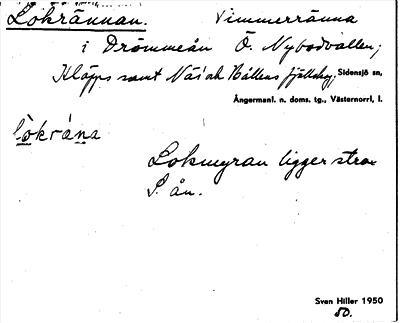 Lokrännan. Vimmerränna
i Drömmeån Ö. Nybodvallen;
Kläpps samt Näs och Hållens fjällskog; Sidensjö sn,
Ångermanl. n. doms. tg., Västernorrl. l.
lòkrána
Lokmyran ligger strax
S. ån.
Sven Hiller 1950
50.